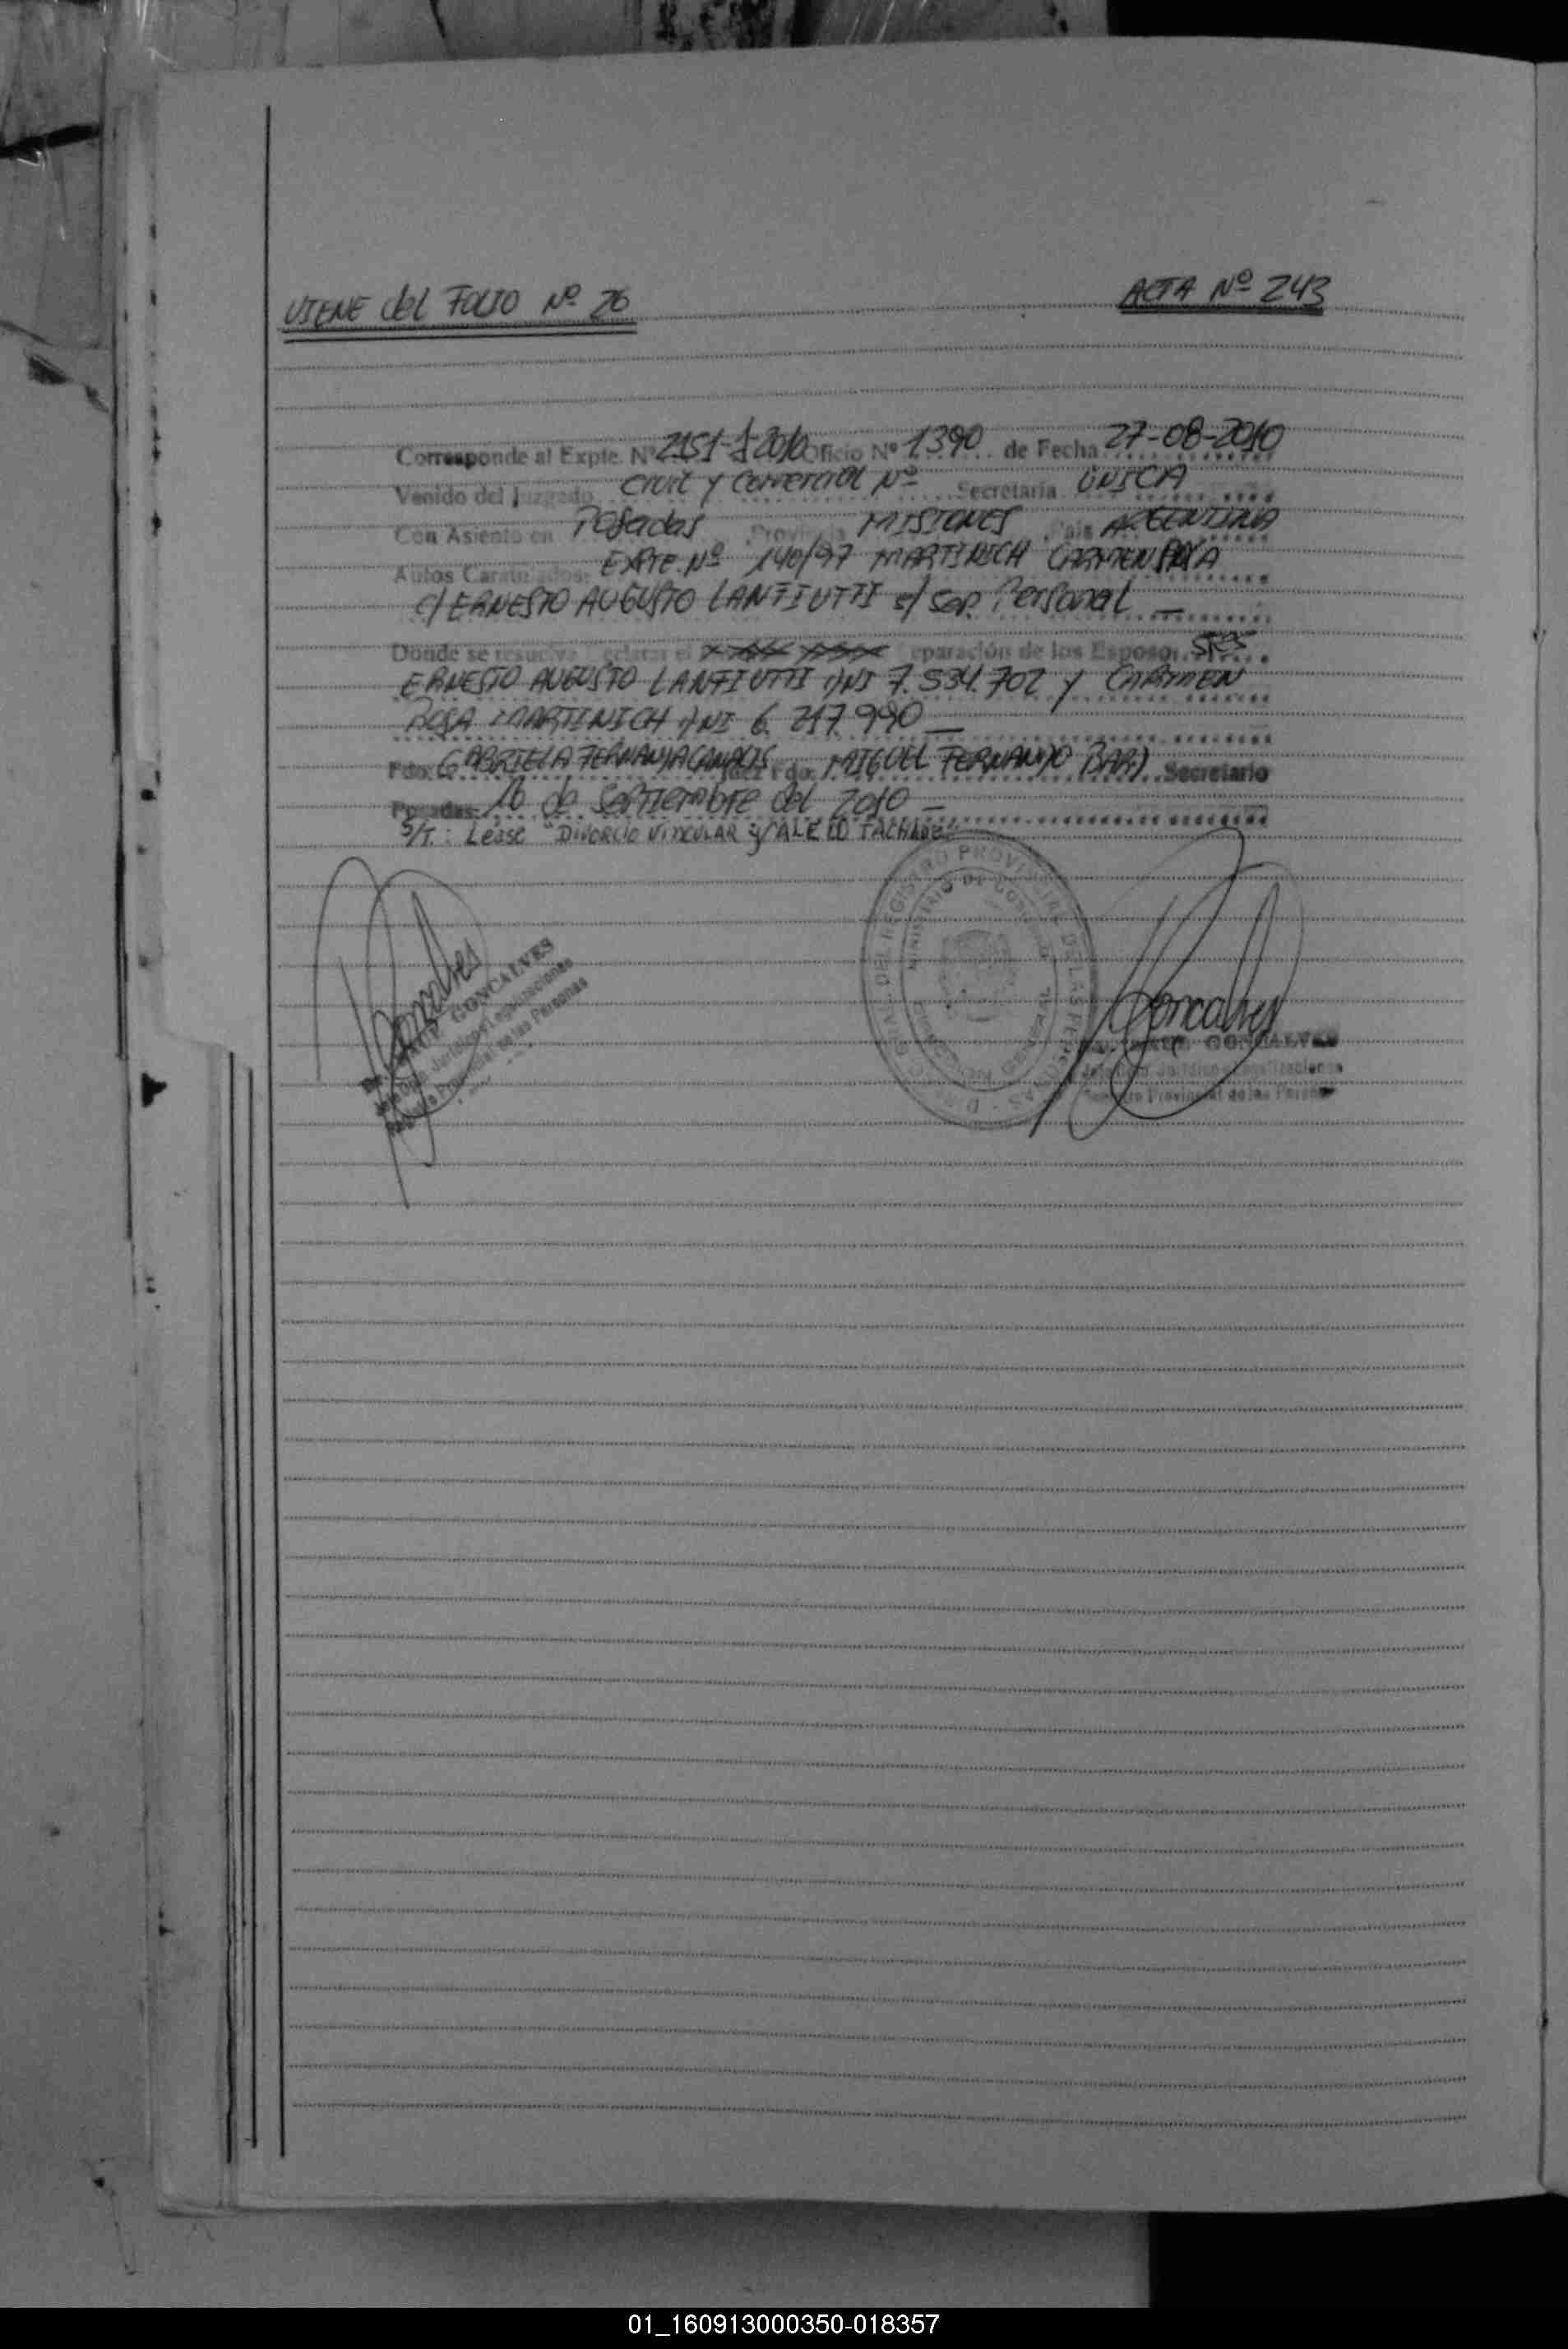 VIENE del FOLIO Nº 26 ACTA Nº 243
Corresponde al Expte. Nº 2151-J-2010 Oficio Nº 1390 de Fecha 27-08-2010
Venido del Juzgado Civil y Comercial Nº Secretaría ÚNICA
Con Asiento en Posadas Provincia MISIONES País ARGENTINA
Autos Caratulados: EXPTE. Nº 140/97 MARTINICH CARMEN ROSA
C/ ERNESTO AUGUSTO LANFIUTTI s/ Sep. Personal
Donde se resuelve declarar el separación de los Esposos SRES
ERNESTO AUGUSTO LANFIUTTI DNI 7.534.702 y CARMEN
ROSA MARTINICH DNI 6.217.990
Fdo: GABRIELA FERNANDA CANALIS Juez Fdo: MIGUEL FERNANDO Secretario
Posadas: 16 de Septiembre del 2010
S/T.: Lease "DIVORCIO VINCULAR y VALE LO TACHADO"
DIREC. GRAL. DEL REGISTRO PROVINCIAL DE LAS PERSONAS
MINISTERIO DE GOBIERNO
Goncalves
Dr. RAUL GONCALVES
Jefe Dpto. Jurídico y Legalizaciones
Registro Provincial de las Personas
Goncalves
Dr. RAUL GONCALVES
Jefe Dpto. Jurídico y Legalizaciones
Registro Provincial de las Personas
01_160913000350-018357